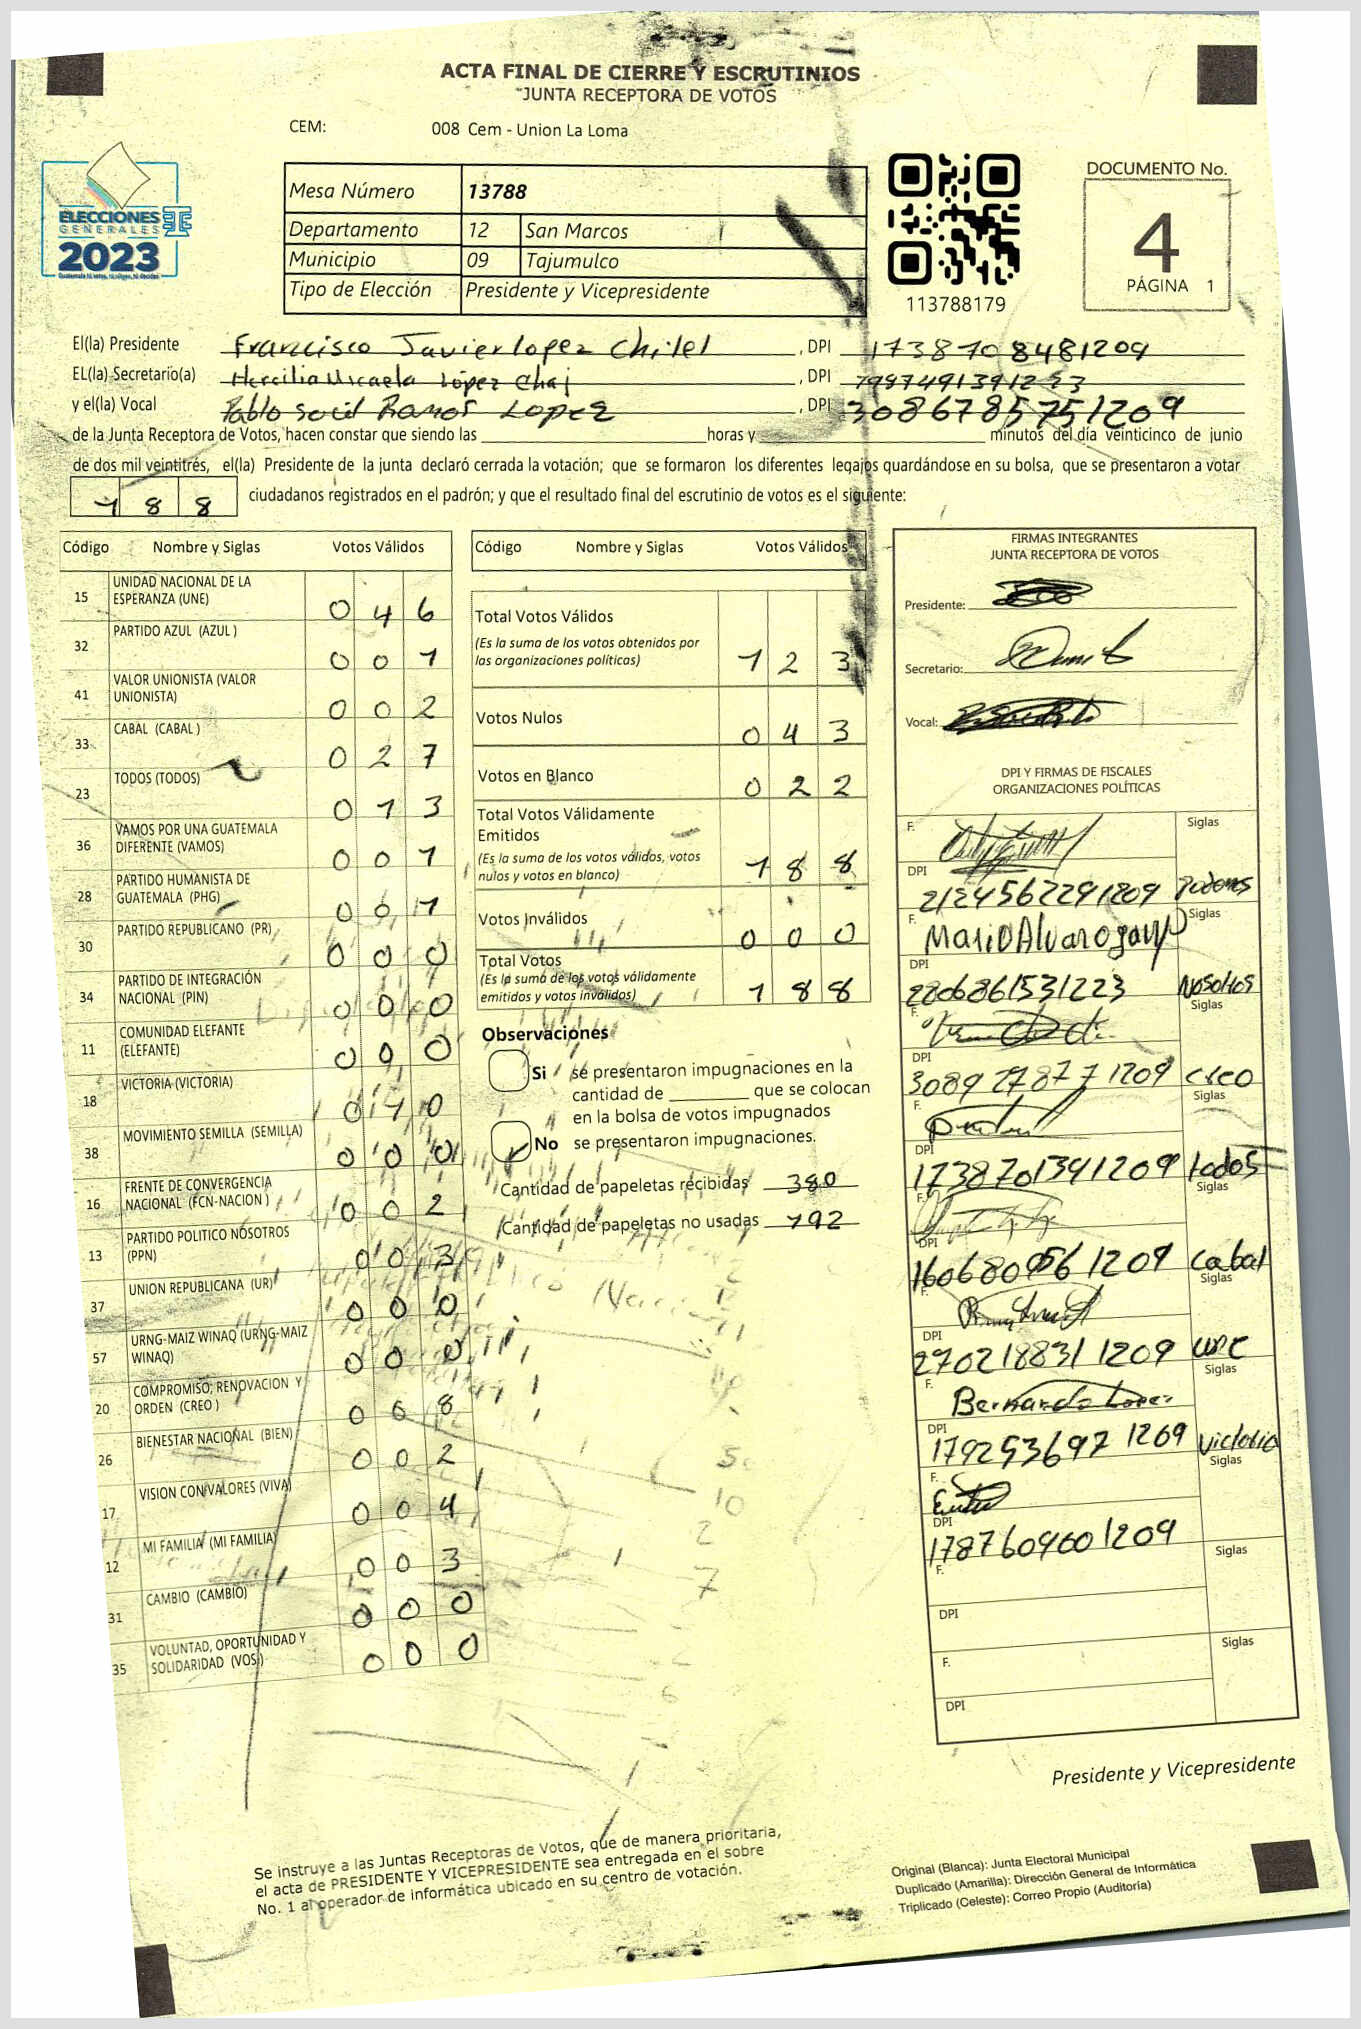 ACTA FINAL DE CIERRE Y ESCRUTINIOS
JUNTA RECEPTORA DE VOTOS
CEM: 008 Cem - Union La Loma
ELECCIONES
GENERALES
2023
Mesa Número 13788
Departamento 12 San Marcos
Municipio 09 Tajumulco
Tipo de Elección Presidente y Vicepresidente
113788179
DOCUMENTO No.
4
PÁGINA 1
El(la) Presidente Francisco Javier lopez Chilel , DPI 1738708481209
EL(la) Secretario(a) Hercilia Micaela López Chaj , DPI
y el(la) Vocal Pablo Ramos Lopez , DPI 3086785751209
de la Junta Receptora de Votos, hacen constar que siendo las horas y minutos del día veinticinco de junio
de dos mil veintitrés, el(la) Presidente de la junta declaró cerrada la votación; que se formaron los diferentes legajos guardándose en su bolsa, que se presentaron a votar
188 ciudadanos registrados en el padrón; y que el resultado final del escrutinio de votos es el siguiente:
Código Nombre y Siglas Votos Válidos
15 UNIDAD NACIONAL DE LA ESPERANZA (UNE) 0 4 6
32 PARTIDO AZUL (AZUL ) 0 0 1
41 VALOR UNIONISTA (VALOR UNIONISTA) 0 0 2
33 CABAL (CABAL ) 0 2 7
23 TODOS (TODOS) 0 1 3
36 VAMOS POR UNA GUATEMALA DIFERENTE (VAMOS) 0 0 1
28 PARTIDO HUMANISTA DE GUATEMALA (PHG) 0 0 1
30 PARTIDO REPUBLICANO (PR) 0 0 0
34 PARTIDO DE INTEGRACIÓN NACIONAL (PIN) 0 0 0
11 COMUNIDAD ELEFANTE (ELEFANTE) 0 0 0
18 VICTORIA (VICTORIA) 0 1 0
38 MOVIMIENTO SEMILLA (SEMILLA) 0 0 0
16 FRENTE DE CONVERGENCIA NACIONAL (FCN-NACION ) 0 0 2
13 PARTIDO POLITICO NOSOTROS (PPN) 0 0 3
37 UNION REPUBLICANA (UR) 0 0 0
57 URNG-MAIZ WINAQ (URNG-MAIZ WINAQ) 0 0 0
20 COMPROMISO, RENOVACION Y ORDEN (CREO ) 0 0 8
26 BIENESTAR NACIONAL (BIEN) 0 0 2
17 VISION CON VALORES (VIVA) 0 0 4
12 MI FAMILIA (MI FAMILIA) 0 0 3
31 CAMBIO (CAMBIO) 0 0 0
35 VOLUNTAD, OPORTUNIDAD Y SOLIDARIDAD (VOS) 0 0 0
Código Nombre y Siglas Votos Válidos
Total Votos Válidos 1 2 3
(Es la suma de los votos obtenidos por
las organizaciones políticas)
Votos Nulos 0 4 3
Votos en Blanco 0 2 2
Total Votos Válidamente
Emitidos 1 8 8
(Es la suma de los votos válidos, votos
nulos y votos en blanco)
Votos Inválidos 0 0 0
Total Votos 1 8 8
(Es la suma de los votos válidamente
emitidos y votos inválidos)
Observaciones
Si se presentaron impugnaciones en la
cantidad de ________ que se colocan
en la bolsa de votos impugnados
No se presentaron impugnaciones.
Cantidad de papeletas recibidas 380
Cantidad de papeletas no usadas 192
FIRMAS INTEGRANTES
JUNTA RECEPTORA DE VOTOS
Presidente:
Secretario:
Vocal:
DPI Y FIRMAS DE FISCALES
ORGANIZACIONES POLÍTICAS
F. Siglas
DPI
2124562291209
F. Mario Alvaro Siglas
DPI
2206861531223 Nosotros
F. Siglas
DPI
3089278771209 creo
F. Siglas
DPI
1738701341209 todos
F. Siglas
DPI
1209 Cabal
F. Siglas
DPI
2702188311209 une
F. Bernardo Lopez Siglas
DPI
1792936971209 Victoria
F. Siglas
DPI
1787609601209
F. Siglas
DPI
F. Siglas
DPI
Presidente y Vicepresidente
Se instruye a las Juntas Receptoras de Votos, que de manera prioritaria,
el acta de PRESIDENTE Y VICEPRESIDENTE sea entregada en el sobre
No. 1 al operador de informática ubicado en su centro de votación.
Original (Blanca): Junta Electoral Municipal
Duplicado (Amarilla): Dirección General de Informática
Triplicado (Celeste): Correo Propio (Auditoría)